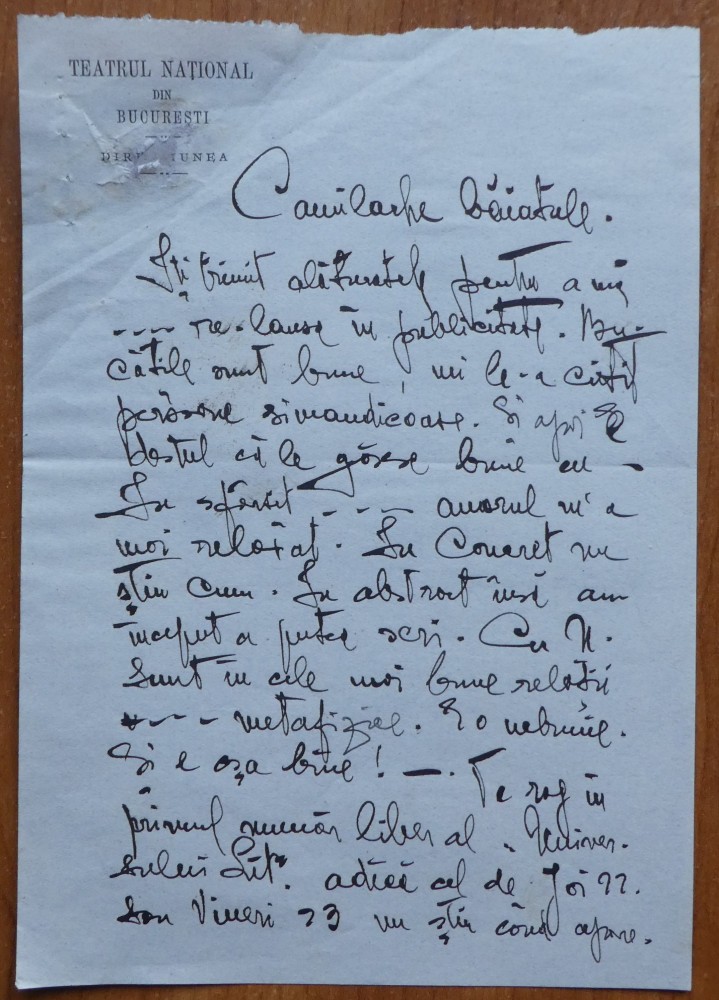 TEATRUL NAȚIONAL
DIN
BUCUREȘTI
DIRECȚIUNEA
Camilache băiatule.
Îți trimit alăturatele pentru a mă
---- re-lansa în publicitate. Bu-
cățile sunt bune, mi le-a citit
persoane simandicoase. Și apoi E
destul că le găsesc bune eu -
În sfârșit ---- amorul m'a
mai relaxat. În Concret nu
știu cum. În abstract însă am
început a putea scri. Cu N.
sunt în cele mai bune relații
---- metafizice. E o nebunie.
Și e așa bine! —. Te rog în
primul număr liber al "Univer-
sului Lit". adică cel de Joi 22.
sau Vineri 23 nu știu când apare.